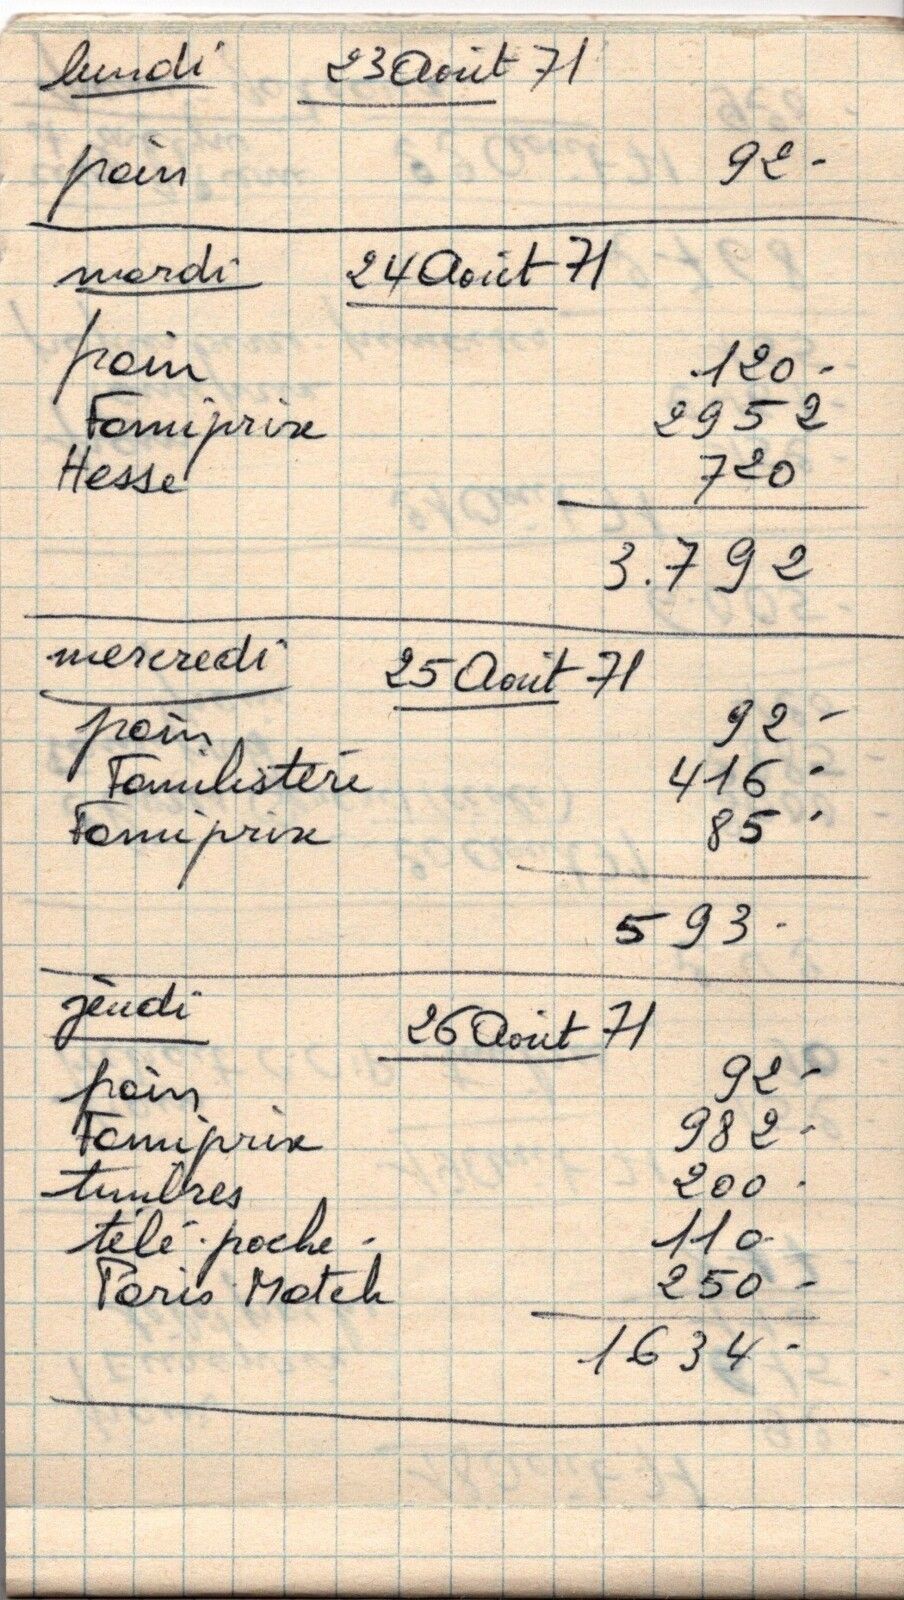 lundi 23 Août 71
pain 92-
mardi 24 Août 71
pain 120-
Famiprix 2952
Hesse 720
3.792
mercredi 25 Août 71
pain 92-
Familistère 416-
Famiprix 85-
593-
jeudi 26 Août 71
pain 92-
Famiprix 982-
timbres 200-
télé-poche- 110-
Paris Match 250-
1634-